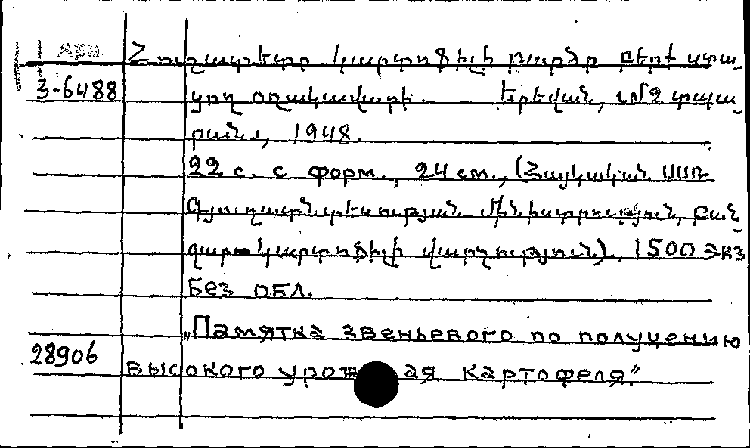 Հուշատետր կարտոֆիլի բարձր բերք ստա-
3-6488 ցող օղակավարի Երեվան, տպա-
րան, 1948.
22 с. с форм., 24 см., (Հայկական ՍՍՌ
Գյուղատնտեսության Մինիստրություն, Բան-
ջարա-կարտոֆիլի վարչություն). 1500 экз
Без обл.
„Памятка звеньевого по получению
28906
высокого урожая картофеля"